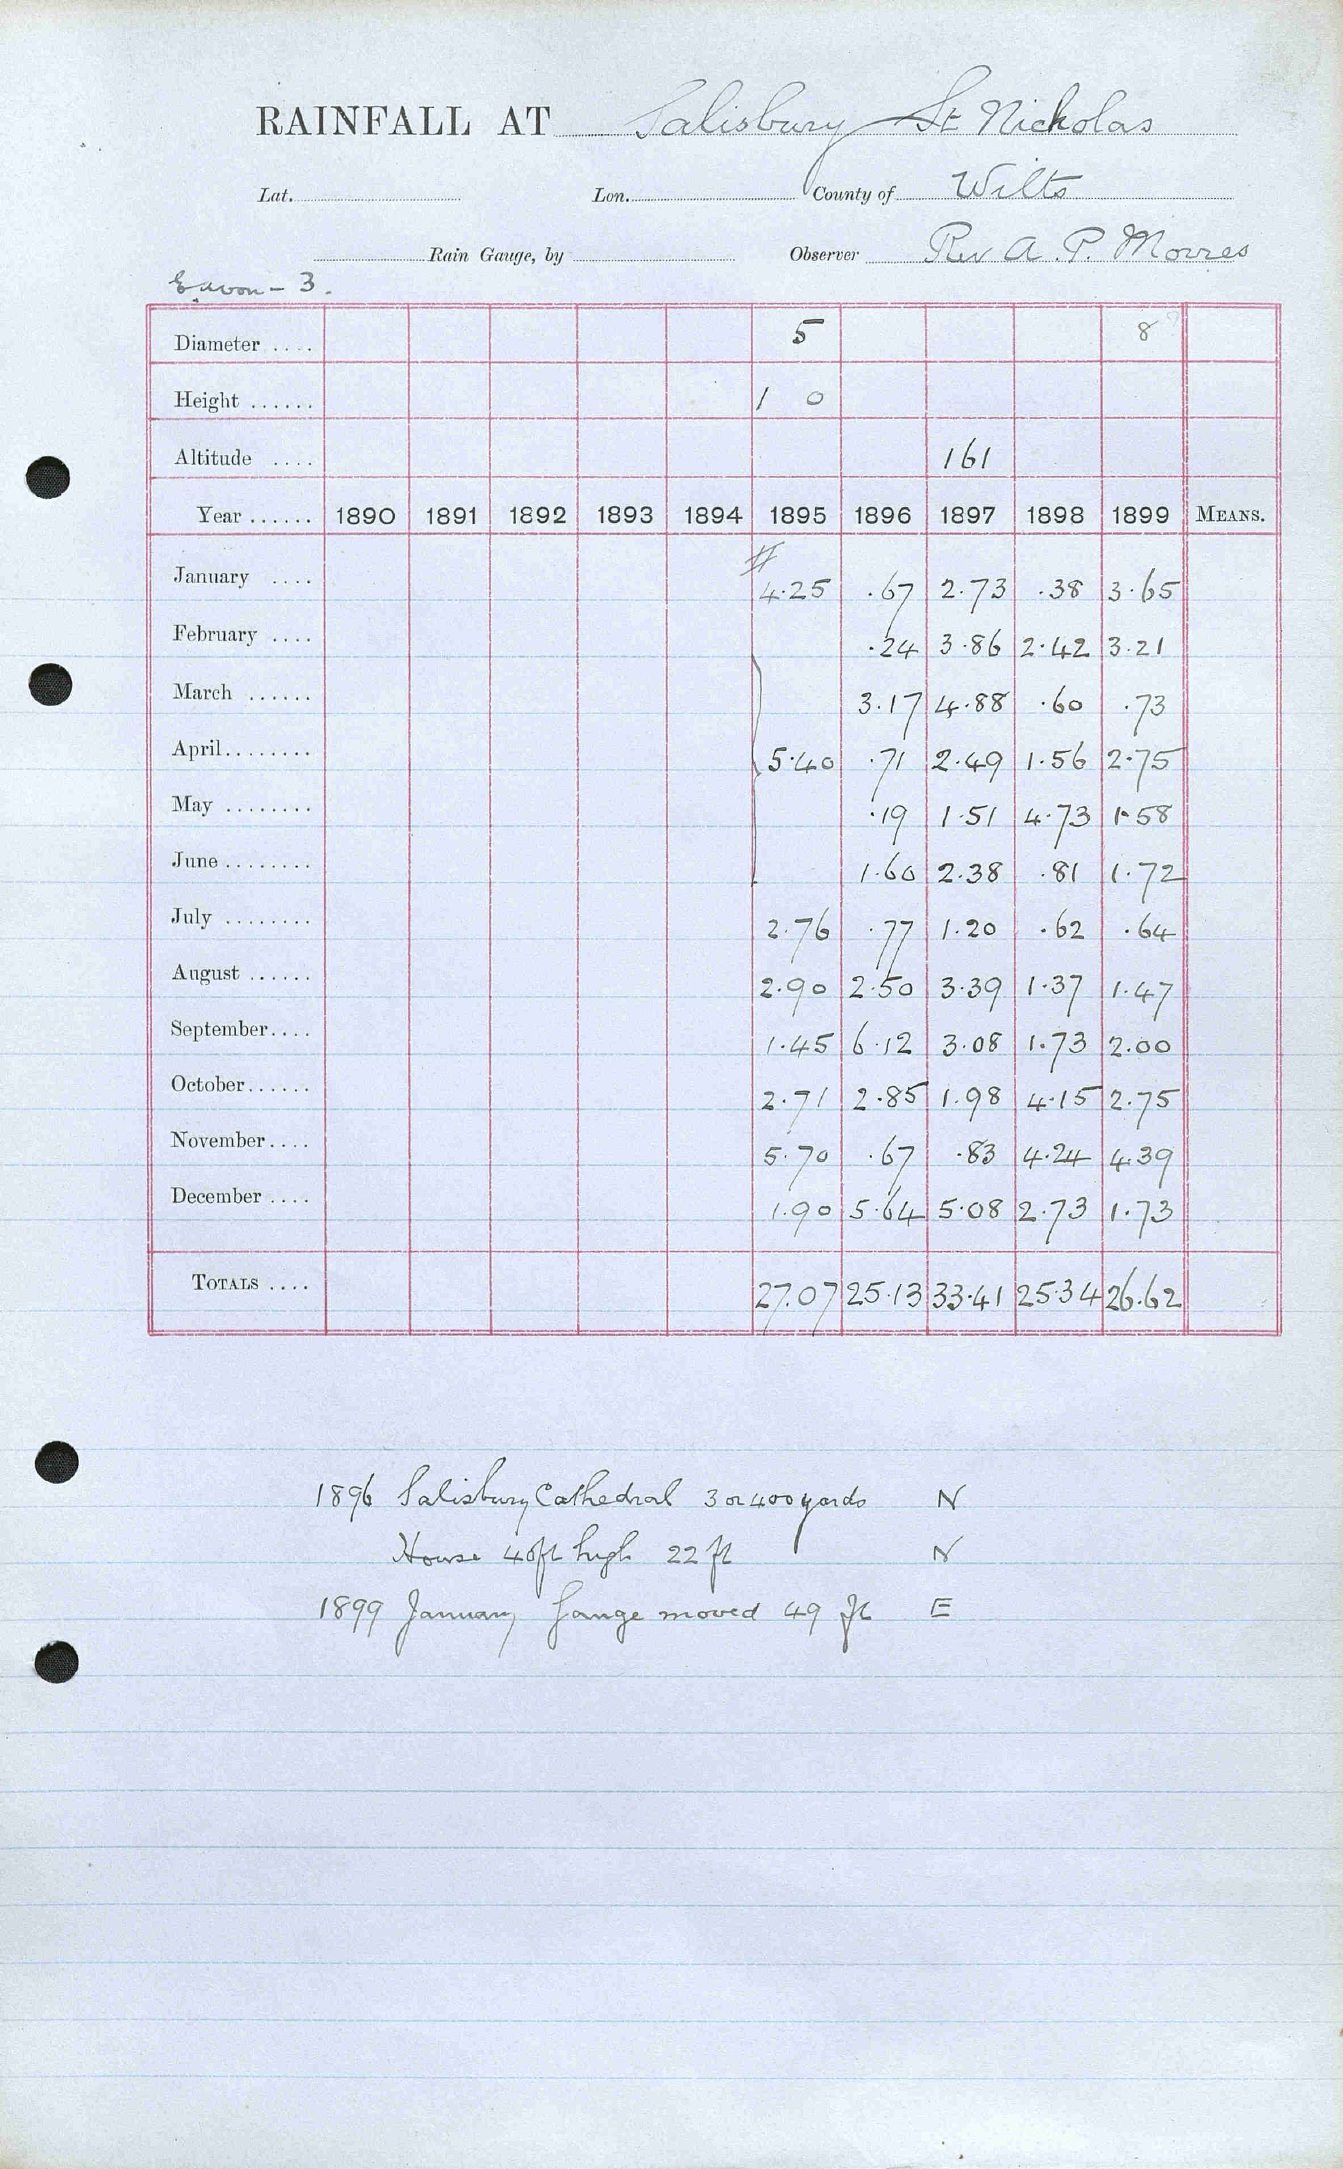 RAINFALL AT Salisbury St Nicholas
Lat. Lon. County of Wilts
Rain Gauge, by Observer Rev A. P. Morres
3.
Diameter .... 5 8
Height ...... 1 0
Altitude .... 161
Year ...... 1890 1891 1892 1893 1894 1895 1896 1897 1898 1899 MEANS.
January .... 4.25 .67 2.73 .38 3.65
February .... .24 3.86 2.42 3.21
March ...... 3.17 4.88 .60 .73
April........ 5.40 .71 2.49 1.56 2.75
May ........ .19 1.51 4.73 1.58
June ........ 1.60 2.38 .81 1.72
July ........ 2.76 .77 1.20 .62 .64
August ...... 2.90 2.50 3.39 1.37 1.47
September.... 1.45 6.12 3.08 1.73 2.00
October...... 2.71 2.85 1.98 4.15 2.75
November.... 5.70 .67 .83 4.24 4.39
December .... 1.90 5.64 5.08 2.73 1.73
TOTALS .... 27.07 25.13 33.41 25.34 26.62
1896 Salisbury Cathedral 3 or 400 yards N
House 40ft high 22 ft N
1899 January Gauge moved 49 ft E